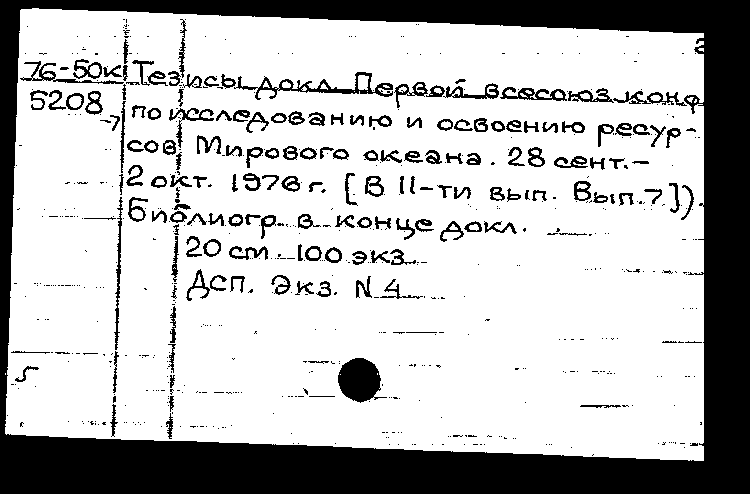 76-50к Тезисы докл. Первой всесоюз. конф.
5208-7 по исследованию и освоению ресур-
сов Мирового океана. 28 сент.-
2 окт. 1976 г. [В 11-ти вып. Вып. 7]).
Библиогр. в конце докл.
20 см. 100 экз.
ДСП. Экз. N 4
5